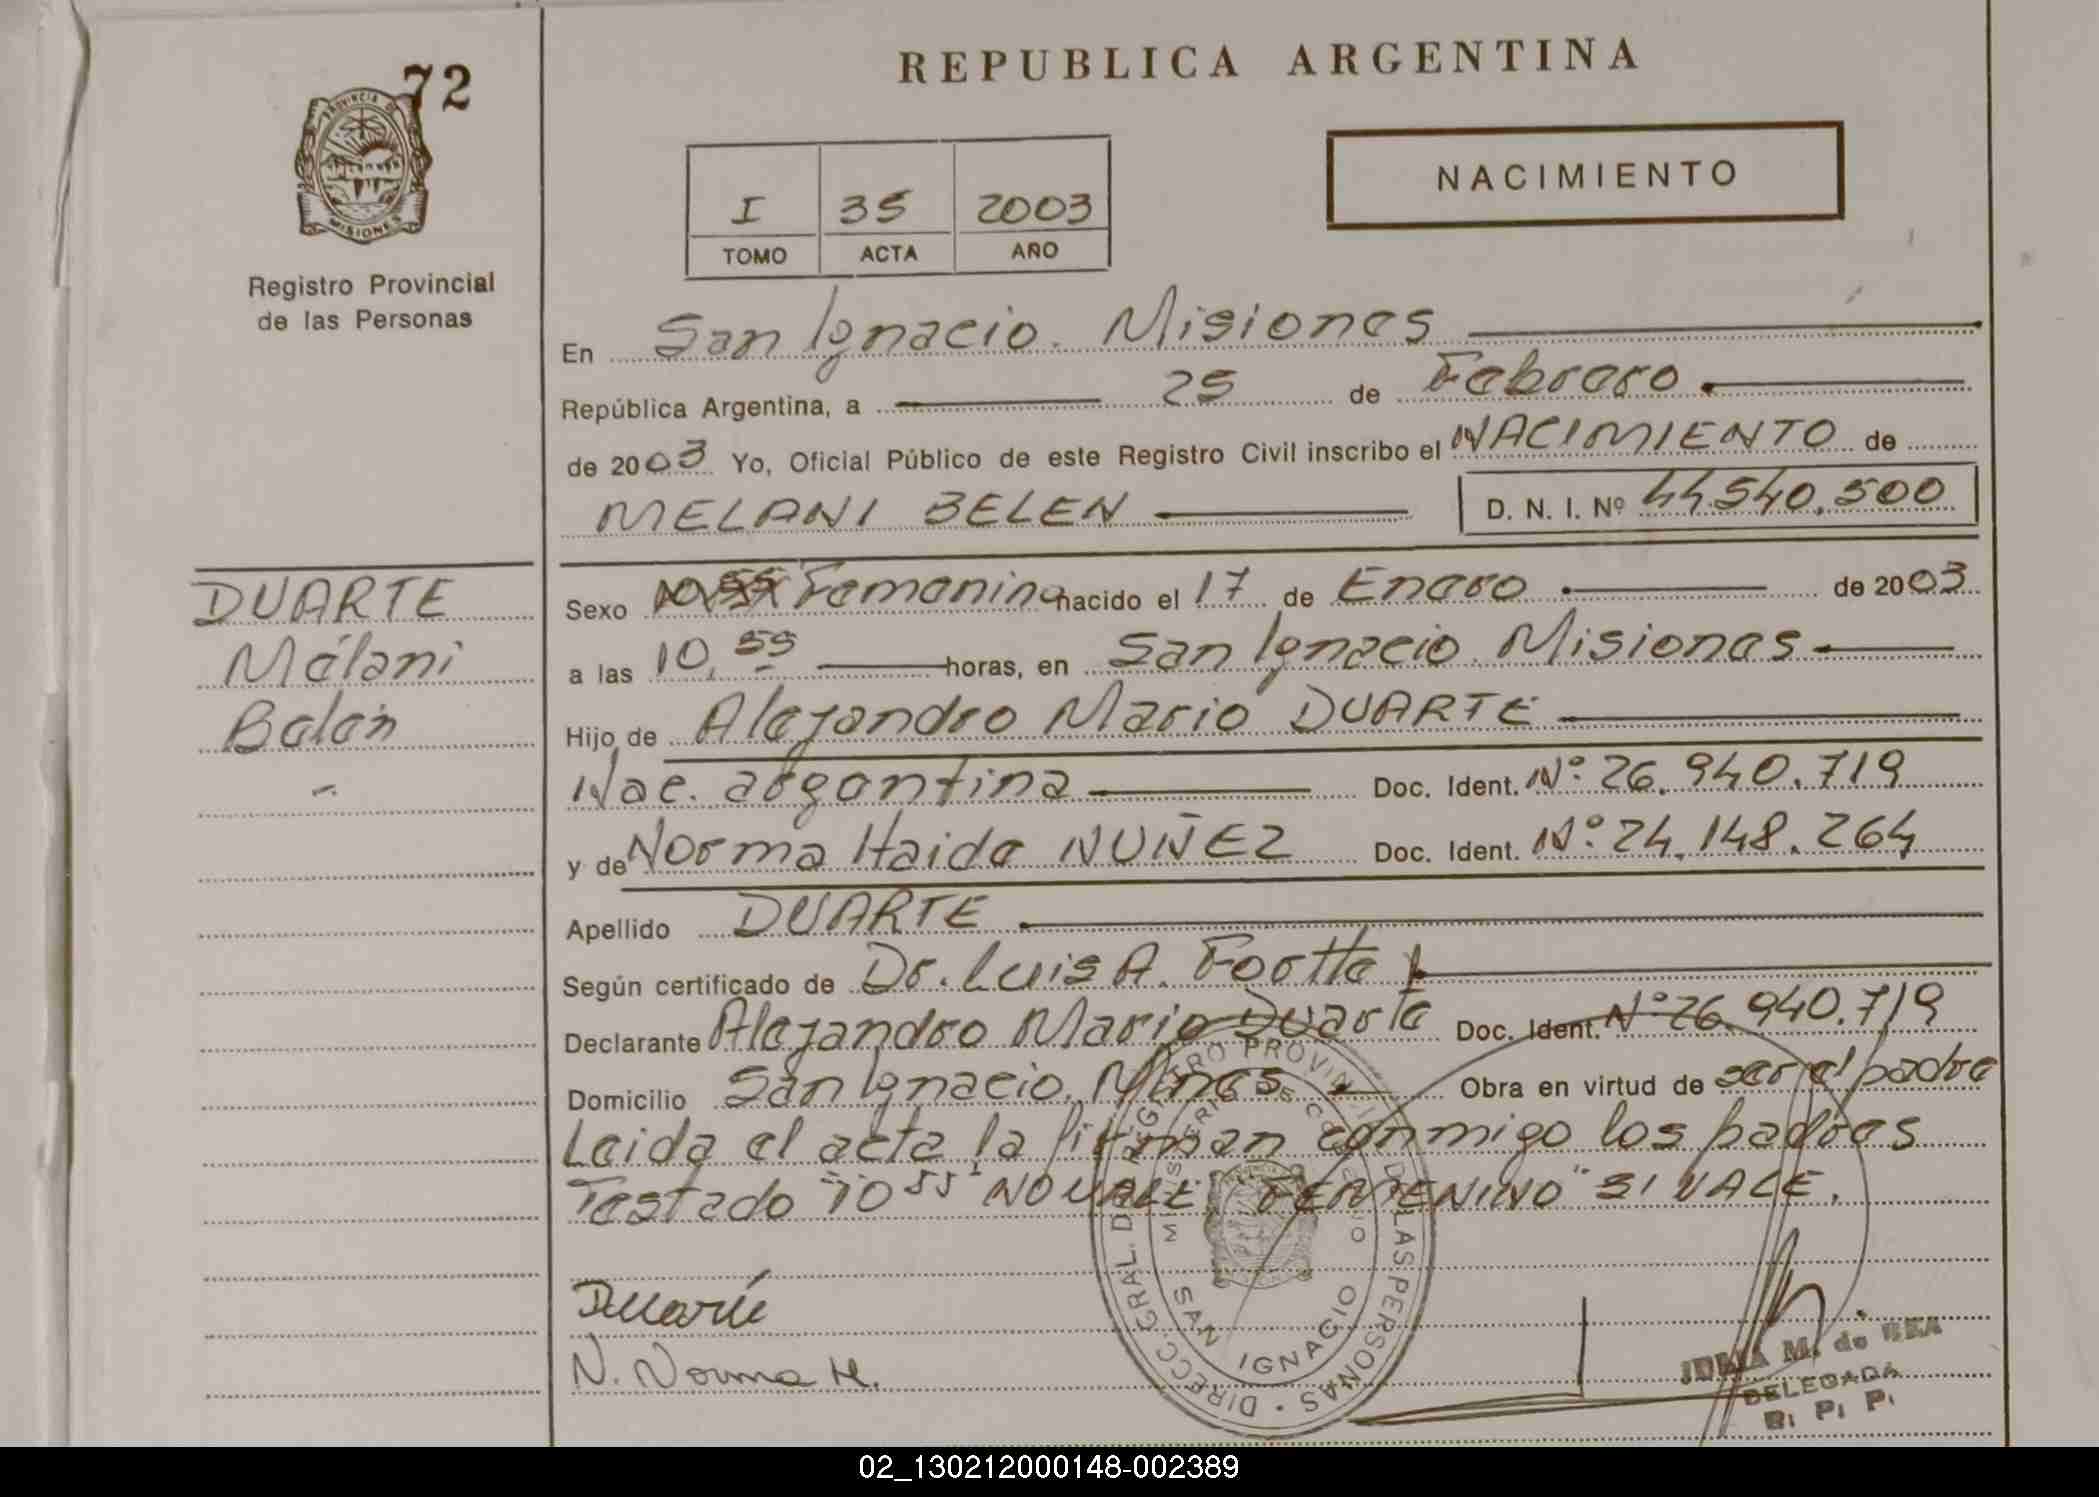 72
PROVINCIA DE
MISIONES
Registro Provincial
de las Personas
REPUBLICA ARGENTINA
I 35 2003
TOMO ACTA AÑO
NACIMIENTO
En San Ignacio. Misiones
República Argentina, a 25 de Febrero
de 2003 Yo, Oficial Público de este Registro Civil inscribo el NACIMIENTO de
MELANI BELEN D. N. I. Nº 44.540.500
DUARTE
Melani
Belén
Sexo Femenino nacido el 17 de Enero de 2003
a las 10,55 horas, en San Ignacio. Misiones
Hijo de Alejandro Mario DUARTE
Nac. argentina Doc. Ident. Nº: 26.940.719
y de Norma Haide NUÑEZ Doc. Ident. Nº: 24.148.264
Apellido DUARTE
Según certificado de Dr. Luis A.
Declarante Alejandro Mario Duarte Doc. Ident. Nº 26.940.719
Domicilio San Ignacio. Mnes Obra en virtud de ser el padre
Leida el acta la firman conmigo los padres
Testado "10 55" NO VALE, "FEMENINO" SI VALE.
Duarte
N. Norma H.
DIRECC. GRAL. DE REGISTRO PROVINCIAL DE LAS PERSONAS
MINISTERIO DE GOBIERNO
SAN IGNACIO
M. de
DELEGADA
R. P. P.
02_130212000148-002389